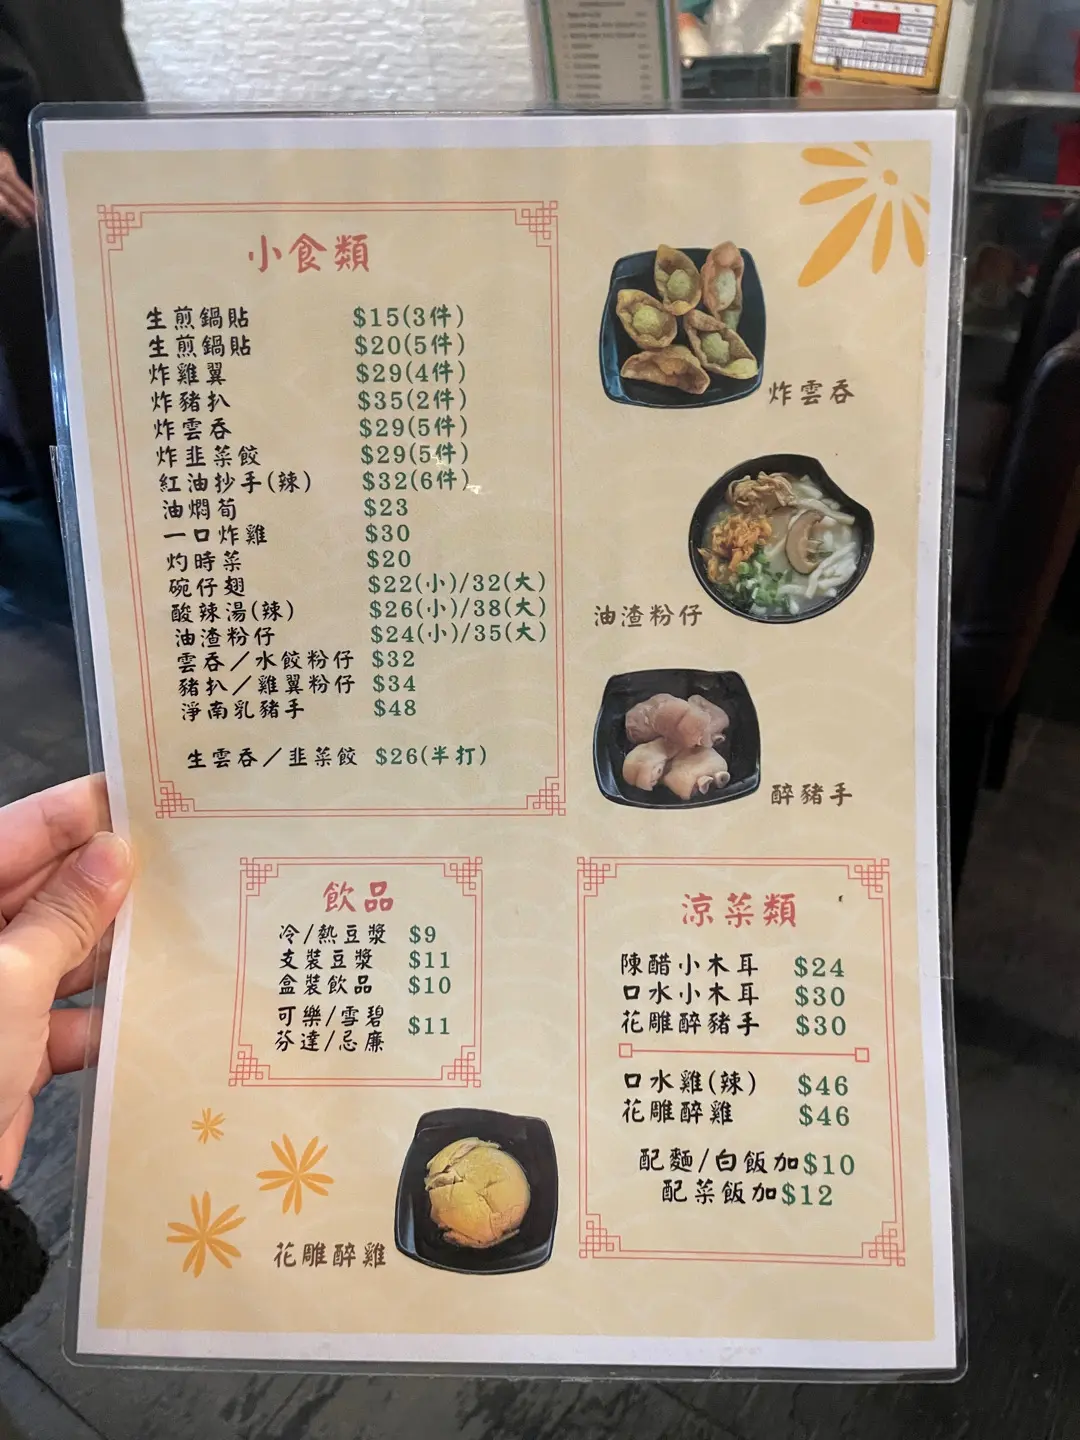 小食類
生煎鍋貼 $15(3件)
生煎鍋貼 $20(5件)
炸雞翼 $29(4件)
炸豬扒 $35(2件)
炸雲吞 $29(5件)
炸韭菜餃 $29(5件)
紅油抄手(辣) $32(6件)
油燜荀 $23
一口炸雞 $30
灼時菜 $20
碗仔翅 $22(小)/32(大)
酸辣湯(辣) $26(小)/38(大)
油渣粉仔 $24(小)/35(大)
雲吞/水餃粉仔 $32
豬扒/雞翼粉仔 $34
淨南乳豬手 $48
生雲吞/韭菜餃 $26(半打)
炸雲吞
油渣粉仔
醉豬手
飲品
冷/熱豆漿 $9
支裝豆漿 $11
盒裝飲品 $10
可樂/雪碧
芬達/忌廉 $11
涼菜類
陳醋小木耳 $24
口水小木耳 $30
花雕醉豬手 $30
口水雞(辣) $46
花雕醉雞 $46
配麵/白飯加$10
配菜飯加$12
花雕醉雞